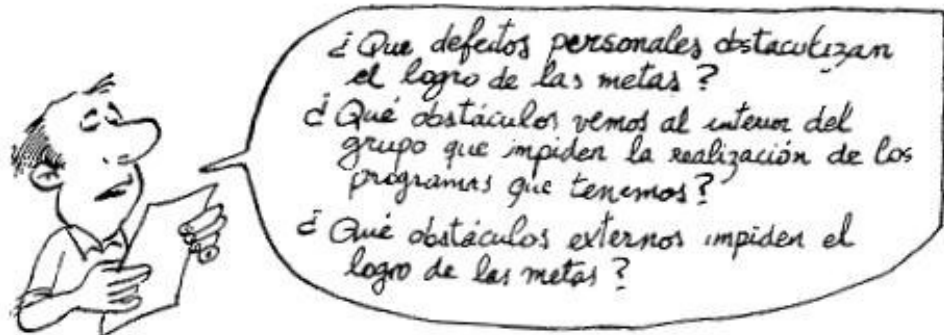 ¿Que defectos personales obstaculizan
el logro de las metas?
¿Qué obstáculos vemos al interior del
grupo que impiden la realización de los
programas que tenemos?
¿Qué obstáculos externos impiden el
logro de las metas?